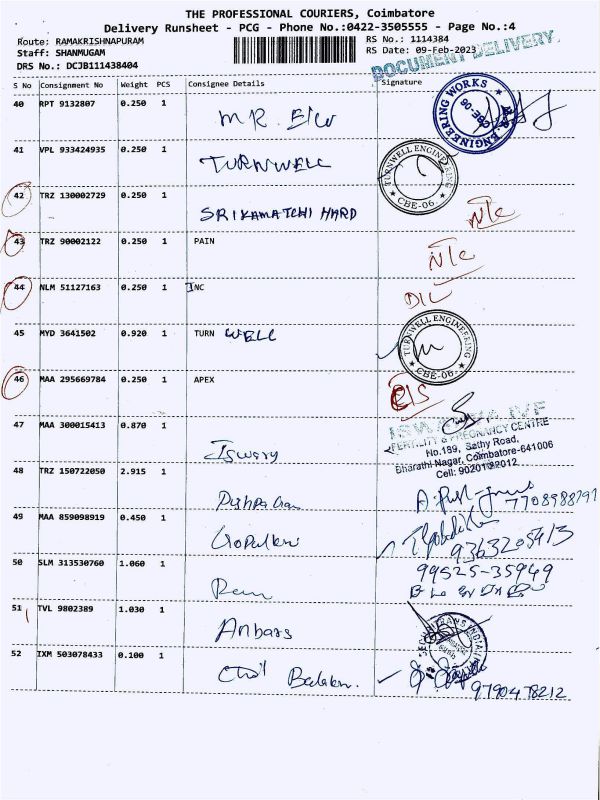 THE PROFESSIONAL COURIERS, Coimbatore
Delivery Runsheet - PCG - Phone No.:0422-3505555 - Page No.:4
Route: RAMAKRISHNAPURAM
RS No.: 1114384
Staff: SHANMUGAM
RS Date: 09-Feb-2023
DRS No.: DCJB111438404
DOCUMENT DELIVERY
S No Consignment No Weight PCS Consignee Details Signature
40 RPT 9132807 0.250 1
MR.
ENGINEERING WORKS
CBE-06
41 VPL 933424935 0.250 1
TURNWELL
TURNWELL ENGINEERING
CBE-06.
42 TRZ 130002729 0.250 1
SRIKAMATCHI HARD
43 TRZ 90002122 0.250 1 PAIN
44 NLM 51127163 0.250 1 INC
45 MYD 3641502 0.920 1 TURN WELL
TURNWELL ENGINEERING
CBE-06.
46 MAA 295669784 0.250 1 APEX
47 MAA 300015413 0.870 1
Iswary
ISWARYA IVF
FERTILITY & PREGNANCY CENTRE
No.189, Sathy Road,
Bharathi Nagar, Coimbatore-641006
Cell: 9020182012
48 TRZ 150722050 2.915 1
7708988791
49 MAA 859098919 0.450 1
9363205413
50 SLM 313530760 1.060 1
99525-35949
51 TVL 9802389 1.030 1
Anbars
52 IXM 503078433 0.100 1
9790478212